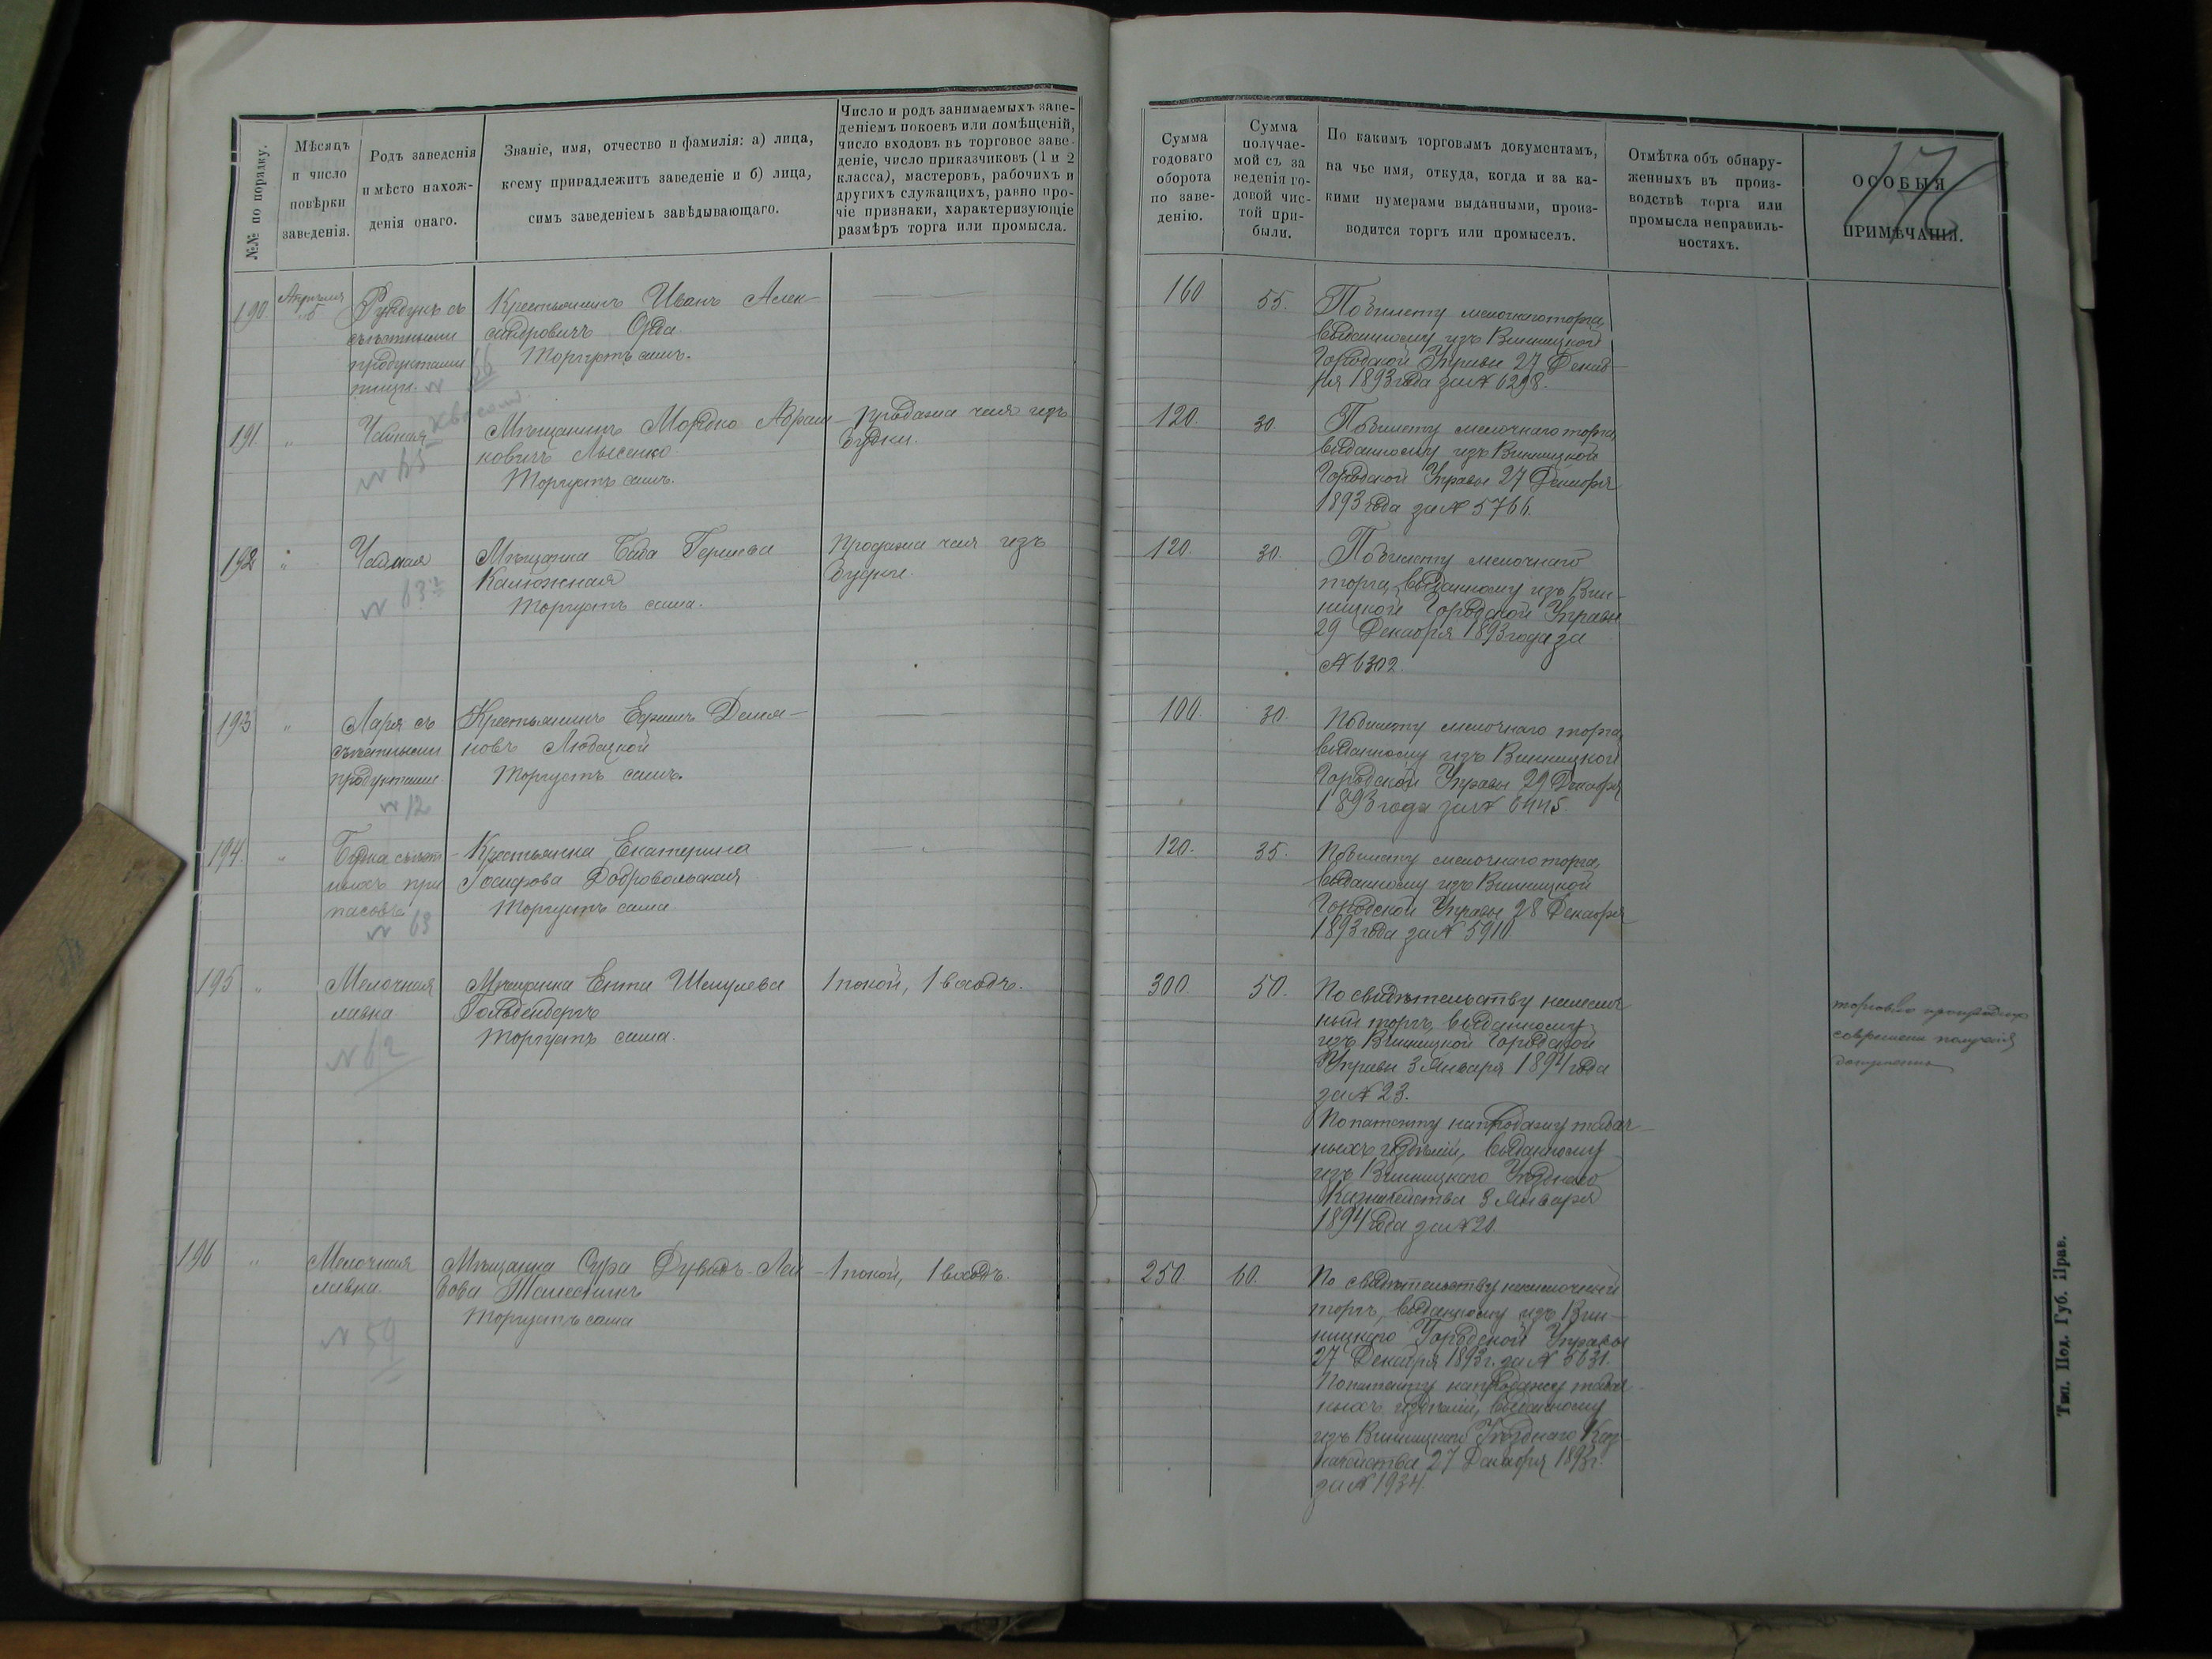 №№ по порядку.
Мѣсяцъ
и число
повѣрки
заведенія.
Родъ заведенія
и мѣсто нахож-
денія онаго.
Званіе, имя, отчество и фамилія: а) лица,
коему принадлежитъ заведеніе и б) лица,
симъ заведеніемъ завѣдывающаго.
Число и родъ занимаемыхъ заве-
деніемъ покоевъ или помѣщеній,
число входовъ въ торговое заве-
деніе, число приказчиковъ (1 и 2
класса), мастеровъ, рабочихъ и
другихъ служащихъ, равно про-
чіе признаки, характеризующіе
размѣръ торга или промысла.
Сумма
годоваго
оборота
по заве-
денію.
Сумма
получае-
мой съ за
веденія го-
довой чис-
той при-
были.
По какимъ торговымъ документамъ,
на чье имя, откуда, когда и за ка-
кими нумерами выданными, произ-
водится торгъ или промыселъ.
Отмѣтка объ обнару-
женныхъ въ произ-
водствѣ торга или
промысла неправиль-
ностяхъ.
ОСОБЫЯ
ПРИМѢЧАНІЯ.
190.
Апрѣля
5
Рундукъ съ
съѣстными
продуктами
Крестьянинъ Иванъ Алек-
сандровичъ
Торгуетъ самъ.
160
55.
По билету мелочнаго торга,
выданному изъ Винницкой
Городской Управы 27 Декаб-
ря 1893 года за № 6298.
191
"
Чайная
№ 65
Мѣщанинъ Мордко Абрам-
ковичъ Лысенко
Торгуетъ самъ.
Продажа чая изъ
будки.
120.
30.
По билету мелочнаго торга,
выданному изъ Винницкой
Городской Управы 27 Декабря
1893 года за № 5766.
192
"
Чайная
№ 63
Мѣщанка Баба Гершева
Калюжная
Торгуетъ сама.
Продажа чая изъ
будки.
120.
30.
По билету мелочнаго
торга, выданному изъ Вин-
ницкой Городской Управы
29 Декабря 1893 года за
№ 6302.
193
"
Ларя съ
съѣстными
продуктами
№ 12
Крестьянинъ Ефимъ Демья-
новъ
Торгуетъ самъ.
100.
30.
По билету мелочнаго торга,
выданному изъ Винницкой
Городской Управы 29 Декабря
1893 года за № 6445.
194.
"
Будка съѣст-
ныхъ при
пасовъ
№ 63
Крестьянка Екатерина
Іосифова Добровольская
Торгуетъ сама
120.
35.
По билету мелочнаго торга,
выданному изъ Винницкой
Городской Управы 28 Декабря
1893 года за № 5910
195
"
Мелочная
лавка
№ 62
Мѣщанка Ента Шмулева
Гольденбергъ
Торгуетъ сама.
1 покой, 1 входъ.
300.
50.
По свидѣтельству на мелоч-
ный торгъ, выданному
изъ Винницкой Городской
Управы 3 Января 1894 года
за № 23.
По патенту на продажу табач-
ныхъ издѣлій, выданному
изъ Винницкаго Уѣзднаго
Казначейства 3 Января
1894 года за № 20.
торговлю
со времени полученія
документа
196
"
Мелочная
лавка.
№ 59
Мѣщанка Сура Дувидъ-Лей-
бова
Торгуетъ сама
1 покой, 1 входъ.
250
60.
По свидѣтельству на мелочный
торгъ, выданному изъ Вин-
ницкаго Городской Управы
27 Декабря 1893 г. за № 5631.
По патенту на продажу табач-
ныхъ издѣлій, выданному
изъ Винницкаго Уѣзднаго Каз-
начейства 27 Декабря 1893 г.
за № 1934.
Тип. Под. Губ. Прав.